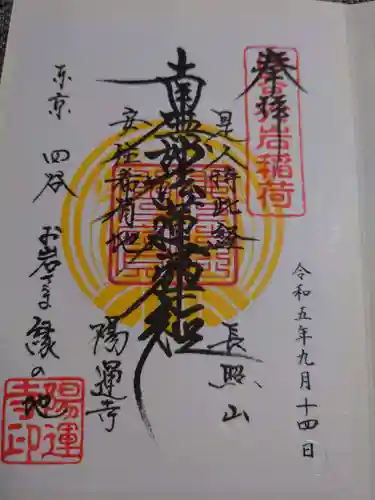 令和五年九月十四日
奉拝
岩稲荷
是人持此経
長照山
南無妙法蓮華経
安住希有地
陽運寺
東京 四谷 お岩さま縁の地
陽運寺印